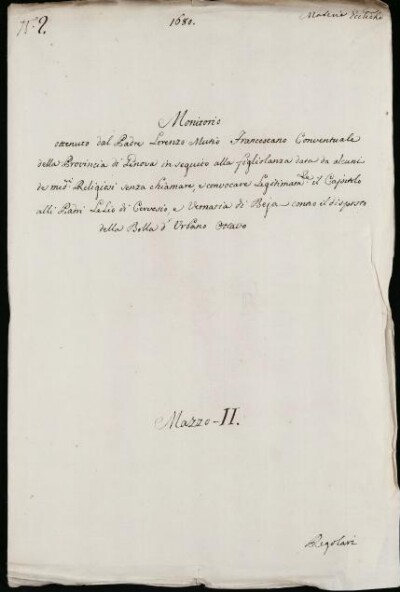 N.º 2.
1680.
Materie Ecclsche
Monitorio
ottenuto dal Padre Lorenzo Mutio Francescano Conventuale
della Provincia di Genova in seguito alla figliolanza data da alcuni
de med.i Religiosi senza chiamare, e convocare Legitimam.te il Capitolo
alli Padri Lelio di Cervesio, e Vernasia di Beja contro il disposto
della Bolla d'Urbano Ottavo
Mazzo - II.
Regolari